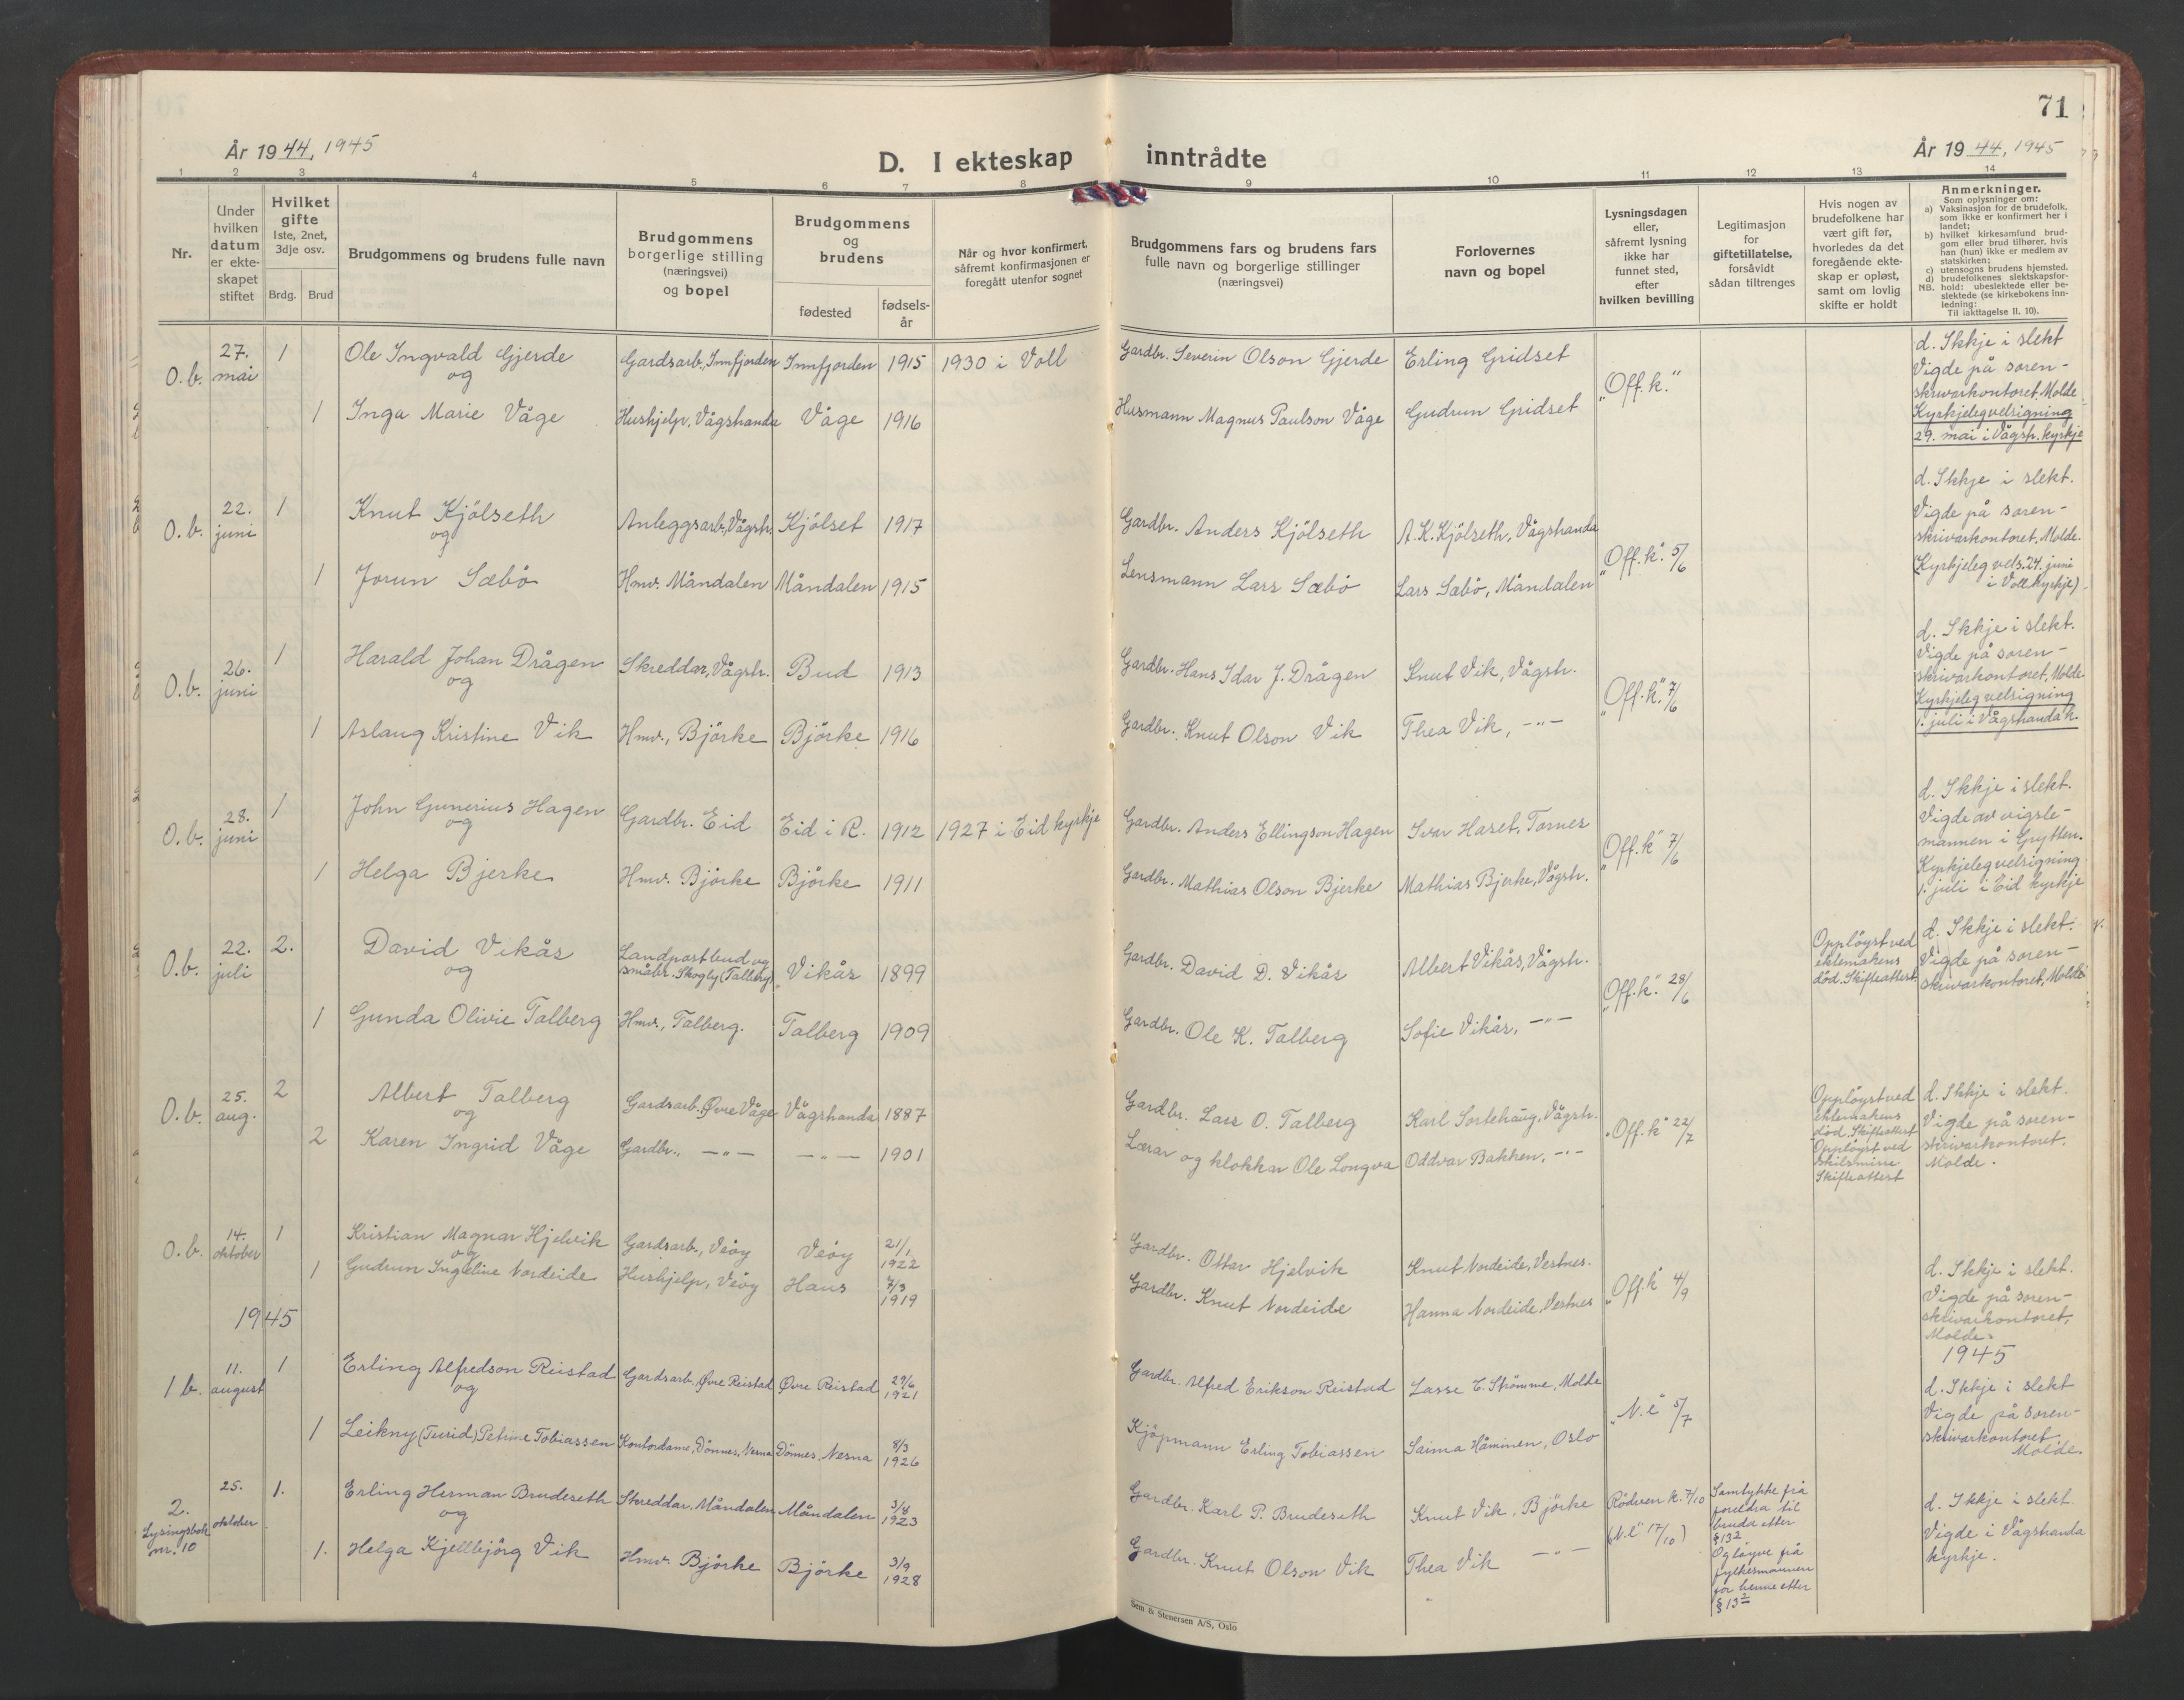 71
År 1944, 1945
D. I ekteskap inntrådte
År 1944, 1945
1 2 3 4 5 6 7 8 9 10 11 12 13 14
Nr.
Under
hvilken
datum
er ekte-
skapet
stiftet
Hvilket
gifte
1ste, 2net,
3dje osv.
Brdg. Brud
Brudgommens og brudens fulle navn
Brudgommens
borgerlige stilling
(næringsvei)
og bopel
Brudgommens
og
brudens
fødested
fødsels-
år
Når og hvor konfirmert,
såfremt konfirmasjonen er
foregått utenfor sognet
Brudgommens fars og brudens fars
fulle navn og borgerlige stillinger
(næringsvei)
Forlovernes
navn og bopel
Lysningsdagen
eller,
såfremt lysning
ikke har
funnet sted,
efter
hvilken bevilling
Legitimasjon
for
giftetillatelse,
forsåvidt
sådan tiltrenges
Hvis nogen av
brudefolkene har
vært gift før,
hvorledes da det
foregående ekte-
skap er opløst,
samt om lovlig
skifte er holdt
Anmerkninger.
Som oplysninger om:
a) Vaksinasjon for de brudefolk,
som ikke er konfirmert her i
landet;
b) hvilket kirkesamfund brud-
gom eller brud tilhører, hvis
han (hun) ikke er medlem av
statskirken;
c) utensogns brudens hjemsted.
d) brudefolkenes slektskapsfor-
NB. hold: ubeslektede eller be-
slektede (se kirkebokens inn-
ledning:
Til iakttagelse II. 10).
O.b. 27. mai 1 Ole Ingvald Gjerde Gardsarb., Innfjorden Innfjorden 1915 1930 i Voll Gardbr. Severin Olson Gjerde Erling Gridset
og
1 Inga Marie Våge Hushjelp, Vågstranda Våge 1916 Husmann Magnus Paulson Våge Gudrun Gridset
"Off. k."
d. Ikkje i slekt
Vigde på soren-
skrivarkontoret, Molde
Kyrkjeleg velsigning
29. mai i Vågstr. kyrkje
O.b. 22. juni 1 Knut Kjölseth Anleggsarb., Vågstr. Kjölset 1917 Gardbr. Anders Kjölseth A. K. Kjölseth, Vågstranda
og
1 Jorun Sæbö Hmv. Måndalen Måndalen 1915 Lensmann Lars Sæbö Lars Sæbö, Måndalen
"Off. k." 5/6
d. Ikkje i slekt.
Vigde på soren-
skrivarkontoret, Molde.
(Kyrkjeleg vels. 24. juni
i Voll kyrkje)
O.b. 26. juni 1 Harald Johan Drågen Skreddar, Vågstr. Bud 1913 Gardbr. Hans Idar J. Drågen Knut Vik, Vågstr.
og
1 Aslaug Kristine Vik Hmv., Björke Björke 1916 Gardbr. Knut Olson Vik Thea Vik, -"-
"Off. k." 7/6
d. Ikkje i slekt.
Vigde på soren-
skrivarkontoret, Molde
Kyrkjeleg velsigning
1. juli i Vågstranda k.
O.b. 28. juni 1 John Gunerius Hagen Gardbr. Eid Eid i R. 1912 1927 i Eid kyrkje Gardbr. Anders Ellingson Hagen Ivar Haset, Tornes
og
1 Helga Bjerke Hmv. Björke Björke 1911 Gardbr. Mathias Olson Bjerke Mathias Bjerke, Vågstr.
"Off. k" 7/6
d. Ikkje i slekt.
Vigde av vigsle-
mannen i Grytten.
Kyrkjeleg velsigning
1. juli i Eid kyrkje
O.b. 22. juli 2. David Vikås Landpostbud og
småbr. Skogly (Talberg) Vikås 1899 Gardbr. David D. Vikås Albert Vikås, Vågstr.
og
1 Gunda Olivie Talberg Hmv., Talberg. Talberg 1909 Gardbr. Ole K. Talberg Sofie Vikås, -"-
"Off. k." 28/6
Opplöyst ved
ektemakens
död. Skifteattest
d. Ikkje i slekt.
Vigde på soren-
skrivarkontoret, Molde
O.b. 25. aug. 2 Albert Talberg Gardsarb. Øvre Våge Vågstranda 1887 Gardbr. Lars O. Talberg Karl Sortehaug, Vågstr.
og
2 Karen Ingrid Våge Gardbr., -"- -"- 1901 Lærar og klokkar Ole Longva Oddvar Bakken, -"-
"Off. k" 22/7
Opplöyst ved
ektemakens
död. Skifteattest
Opplöyst ved
skilsmisse
Skifteattest
d. Ikkje i slekt.
Vigde på soren-
skrivarkontoret.
Molde.
O.b. 14. oktober 1 Kristian Magnar Hjelvik Gardsarb., Veöy Veöy 21/1 1922 Gardbr. Ottar Hjelvik Knut Nordeide, Vestnes.
og
1 Gudrun Ingeline Nordeide Hushjelp, Veöy Haus 7/3 1919 Gardbr. Knut Nordeide Hanna Nordeide, Vestnes
"Off. k" 4/9
d. Ikkje i slekt.
Vigde på soren-
skrivarkontoret,
Molde.
1945
1945
1 b. 11. august 1 Erling Alfredson Reistad Gardsarb., Øvre Reistad Øvre Reistad 29/6 1921 Gardbr. Alfred Erikson Reistad Lasse E. Strömme, Molde
og
1 Leikny (Turid) Petrine Tobiassen Kontordame, Dönnes, Nesna Dönnes, Nesna 8/3 1926 Kjöpmann Erling Tobiassen Saima Håminen, Oslo
"N.l" 5/7
d. Ikkje i slekt
Vigde på soren-
skrivarkontoret,
Molde.
2.
Lysingsbok
nr. 10
25. oktober 1. Erling Herman Brudeseth Skreddar, Måndalen Måndalen 3/4 1923 Gardbr. Karl P. Brudeseth Knut Vik, Björke
og
1. Helga Kjellbjörg Vik Hmv. Björke Björke 3/9 1928 Gardbr. Knut Olson Vik Thea Vik -"-
Rödven k. 7/10
("N.l" 17/10)
Samtykke frå
foreldra til
bruda etter
§ 13²
Og löyve frå
fylkesmannen
for henne etter
§ 13²
d. Ikkje i slekt.
Vigde i Vågstranda
kyrkje.
Sem & Stenersen A/S, Oslo